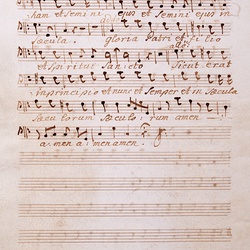 ham et Semini ejus et Semini ejus in
Sæcula. gloria Patri et Filio
et Spiritui Sancto Sicut erat
in principio et nunc et Semper et in Sæcula
Sæculorum Sæculorum amen
amen amen amen.